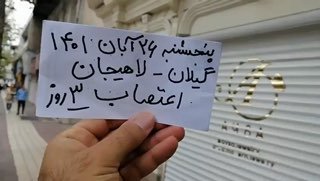 پنجشنبه ۲۶ آبان ۱۴۰۱
گیلان - لاهیجان
اعتصاب ۳ روز